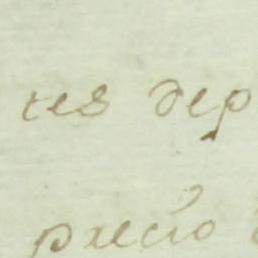 tes dep
precio